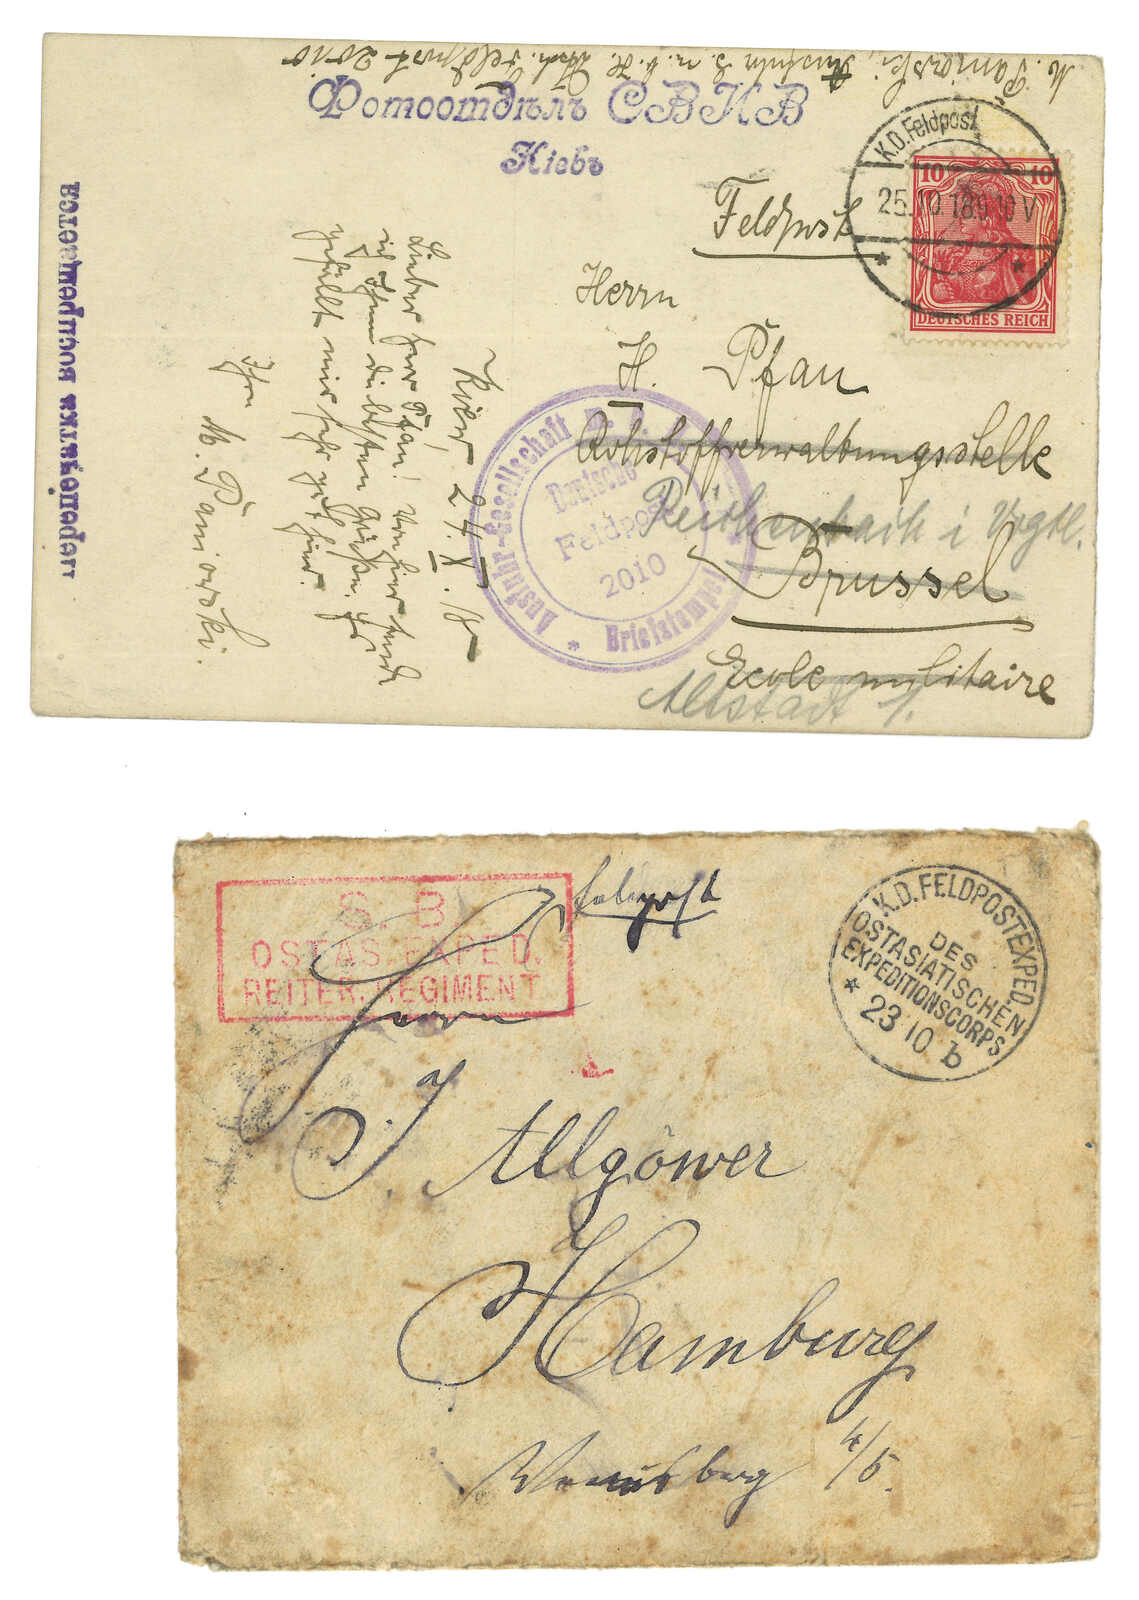 M. Paniorski, Ausfuhr G. m. b. H. Dtsch. Feldpost 2010
Фотоотдѣлъ СВИВ
Кіевъ
"перепечатка воспрещается
K.D. Feldpost
25.10.18.9-10V
* *
10 10
DEUTSCHES REICH
Feldpost
Herrn
H. Pfau
Rohstoffverwaltungsstelle
Reichenbach i Vogtl.
Brüssel
Ecole militaire
Altstadt 1.
Ausfuhr-Gesellschaft m. b.
Deutsche
Feldpost
2010
* Briefstempel
Kiew 24. X. 18
Lieber Herr Pfau! Von hier sende
ich Ihnen die besten Grüße. Es
gefällt mir sehr gut hier.
Ihr
M. Paniorski.
S. B.
OSTAS. EXPED.
REITER. REGIMENT
Feldpost
K.D. FELDPOSTEXPED.
DES
OSTASIATISCHEN
EXPEDITIONSCORPS
* 23 10 b
Herrn
J. Allgöwer
Hamburg
Venusberg 4/5.